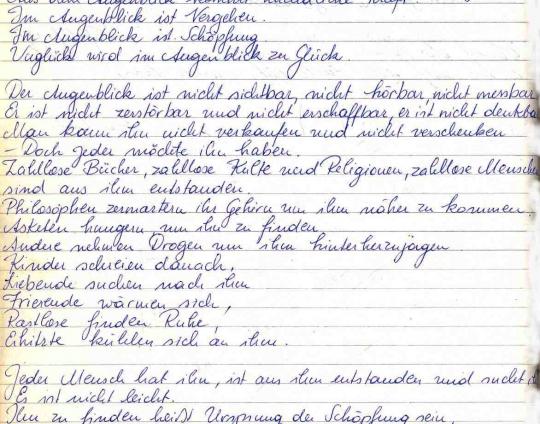 Aus dem Augenblick
Im Augenblick ist Vergehen.
Im Augenblick ist Schöpfung
Unglück wird im Augenblick zu Glück.
Der Augenblick ist nicht sichtbar, nicht hörbar, nicht messbar
Er ist nicht zerstörbar und nicht erschaffbar, er ist nicht denkba
Man kann ihn nicht verkaufen und nicht verschenken
- Doch jeder möchte ihn haben.
Zahllose Bücher, zahllose Kulte und Religionen, zahllose Mensche
sind aus ihm entstanden.
Philosophen zermartern ihr Gehirn um ihm näher zu kommen.
Asketen hungern um ihn zu finden
Andere nehmen Drogen um ihm hinterherzujagen
Kinder schreien danach,
Liebende suchen nach ihm
Frierende wärmen sich,
Rastlose finden Ruhe,
Erhitzte kühlen sich an ihm.
Jeder Mensch hat ihn, ist aus ihm entstanden und sucht i
Es ist nicht leicht.
Ihn zu finden heißt Ursprung der Schöpfung sein,